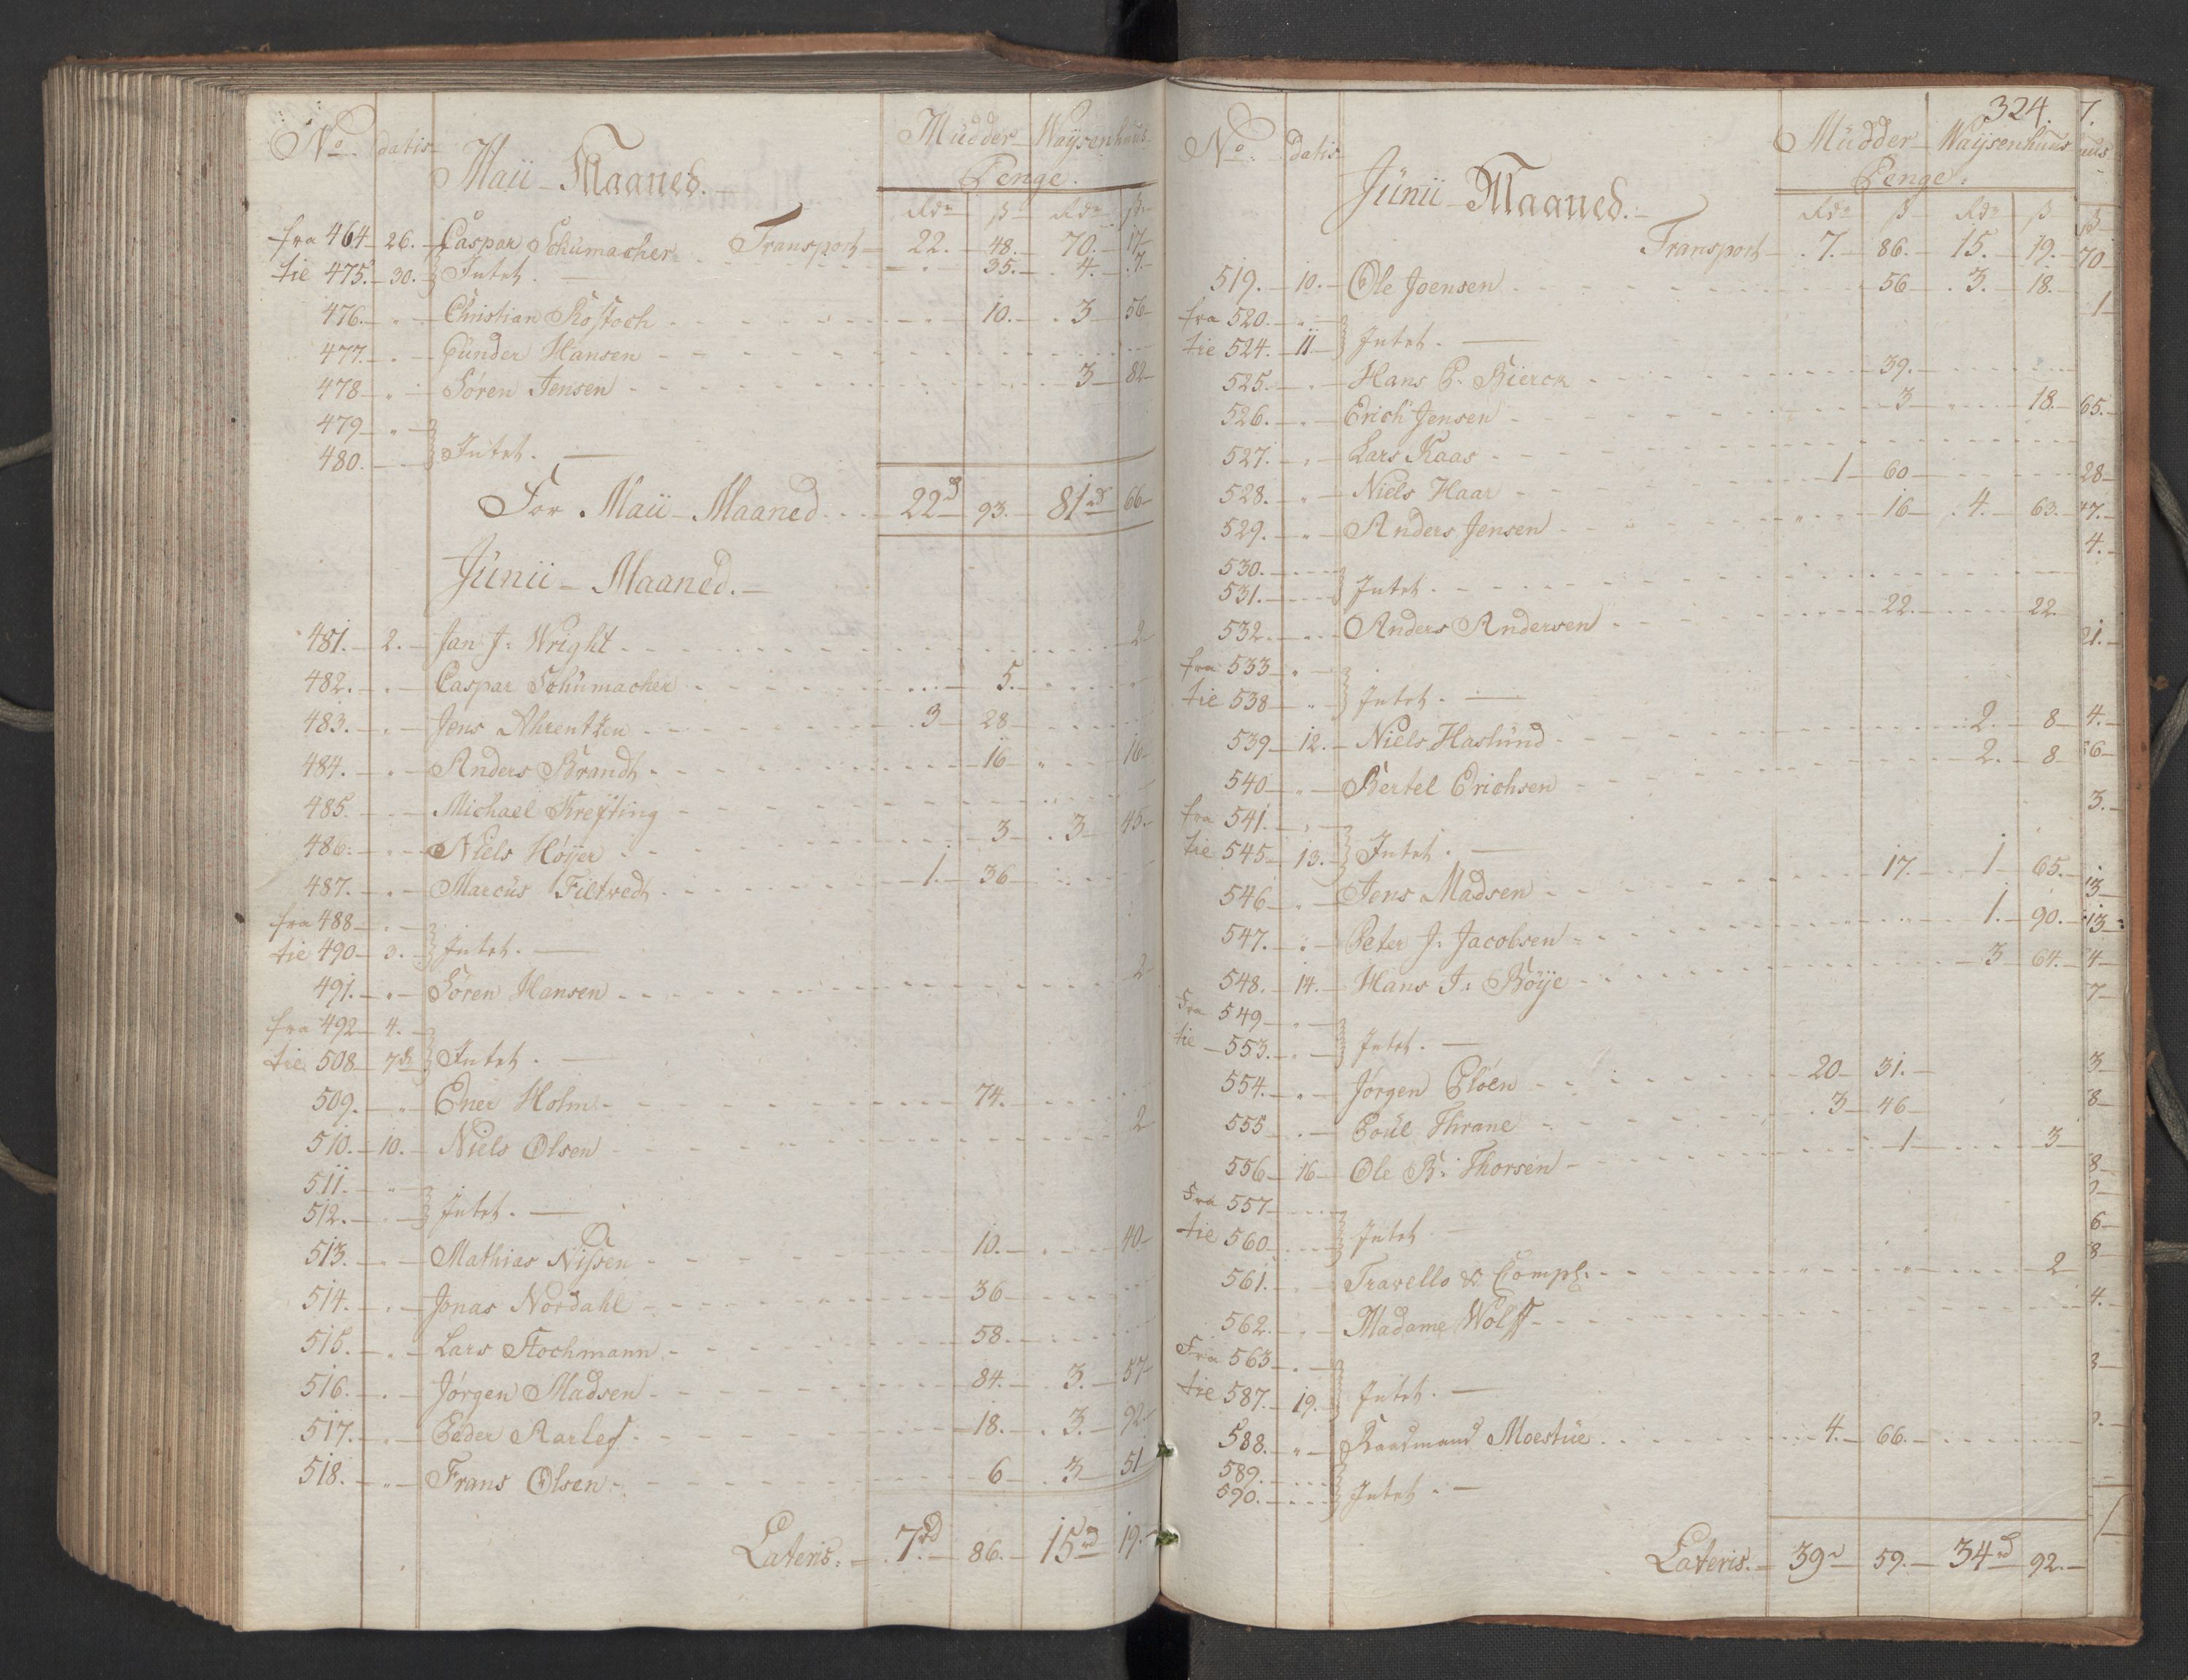 No. datis Mudder Waÿsenhuus
Maii Maaned. Penge.
Rdr ß Rdr ß
fra 464 26. Caspar Schumacher Transport 22. 48. 70. 17.
tie 475. 30. Intet. 35. 4. 7.
476. " Christian Rostoch 10. 3 56
477. " Gunder Hansen
478 " Søren Jensen 3 82
479 "
480. Intet.
For Maii Maaned 22rd 93. 81rd 66
Junii Maaned.
481. 2. Jan J: Wright 2
482. Caspar Schumacher 5.
483. Jens Ahrentzen 3 28
484. " Anders Brandt 16 " 16
485. Michael Krefting
486. Niels Høÿer 3 3 45.
487. Marcus Filtvedt 1. 36
fra 488 "
tie 490 3. Intet.
491. " Søren Hansen 2
fra 492 4.
tie 508 7de Intet.
509. " Ener Holm 74.
510. 10. Niels Olsen 2
511. "
512. Intet.
513. " Mathias Nissen 10. 40
514. Jonas Nordahl 36
515. Lars Stochmann 58.
516. Jørgen Madsen 84. 3. 57
517. Peder Aarlef 18. 3. 92.
518. " Frans Olsen 6 3 51
Lateris: 7rd 86. 15rd 19.
324.
No: datis Mudder Waÿsenhuus
Junii Maaned. Penge.
Rdr ß Rdr ß
Transport 7. 86. 15. 19.
519. 10. Ole Joensen 56 3. 18.
fra 520. "
tie 524. 11 Intet.
525. Hans P. Kierck 39.
526. " Erich Jensen 3 18.
527. " Lars Kaas
528. " Niels Haar 1 60
529. " Anders Jensen 16 4. 63.
530.
531. Intet.
532. " Anders Andersen 22. 22
fra 533 "
tie 538 " Intet.
539 12. Niels Haslund 2. 8
540 " Bertel Erichsen 2. 8
fra 541. "
tie 545 13. Intet.
546 " Jens Madsen 17. 1 65.
547. " Peter J: Jacobsen 1. 90.
548. 14. Hans J: Bøÿe 3 64.
Fra 549 "
tie 553. " Intet.
554. " Jørgen Pløen 20 31.
555 Poul Thrane 3 46
556 16 Ole R: Thorsen 1 3
Fra 557
tie 560 Intet
561. Travello & Comp: 2
562. Madame Wolff
Fra 563 "
tie 587. 19. Intet.
588. " Raadmand Moestue 4. 66.
589.
590. Intet.
Lateris. 39r 59. 34rd 92.